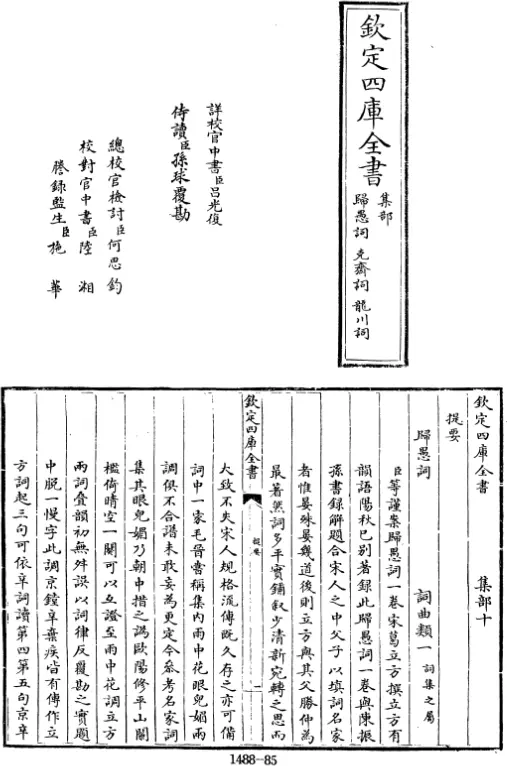 欽定四庫全書
集部
歸愚詞 克齋詞 龍川詞
詳校官中書臣呂光復
侍讀臣孫球覆勘
總校官檢討臣何思鈞
校對官中書臣陸湘
謄錄監生臣施華
欽定四庫全書 集部十
提要
歸愚詞 詞曲類一 詞集之屬
臣等謹案歸愚詞一卷宋葛立方撰立方有
韻語陽秋已別著錄此歸愚詞一卷與陳振
孫書錄解題合宋人之中父子以填詞名家
者惟晏殊晏幾道後則立方與其父勝仲為
最著其詞多平實鋪叙少清新宛轉之思而
欽定四庫全書 提要 一
大致不失宋人規格流傳既久存之亦可備
詞中一家毛晉嘗稱集內雨中花眼兒媚兩
調俱不合譜未敢妄為更定今叅考名家詞
集其眼兒媚乃朝中措之譌歐陽修平山闌
檻倚晴空一闋可以互證至雨中花調立方
兩詞疊韻初無舛誤以詞律反覆勘之實題
中脫一慢字此調京鏜辛棄疾皆有傳作立
方詞起三句可依辛詞讀第四第五句京辛
1488—85